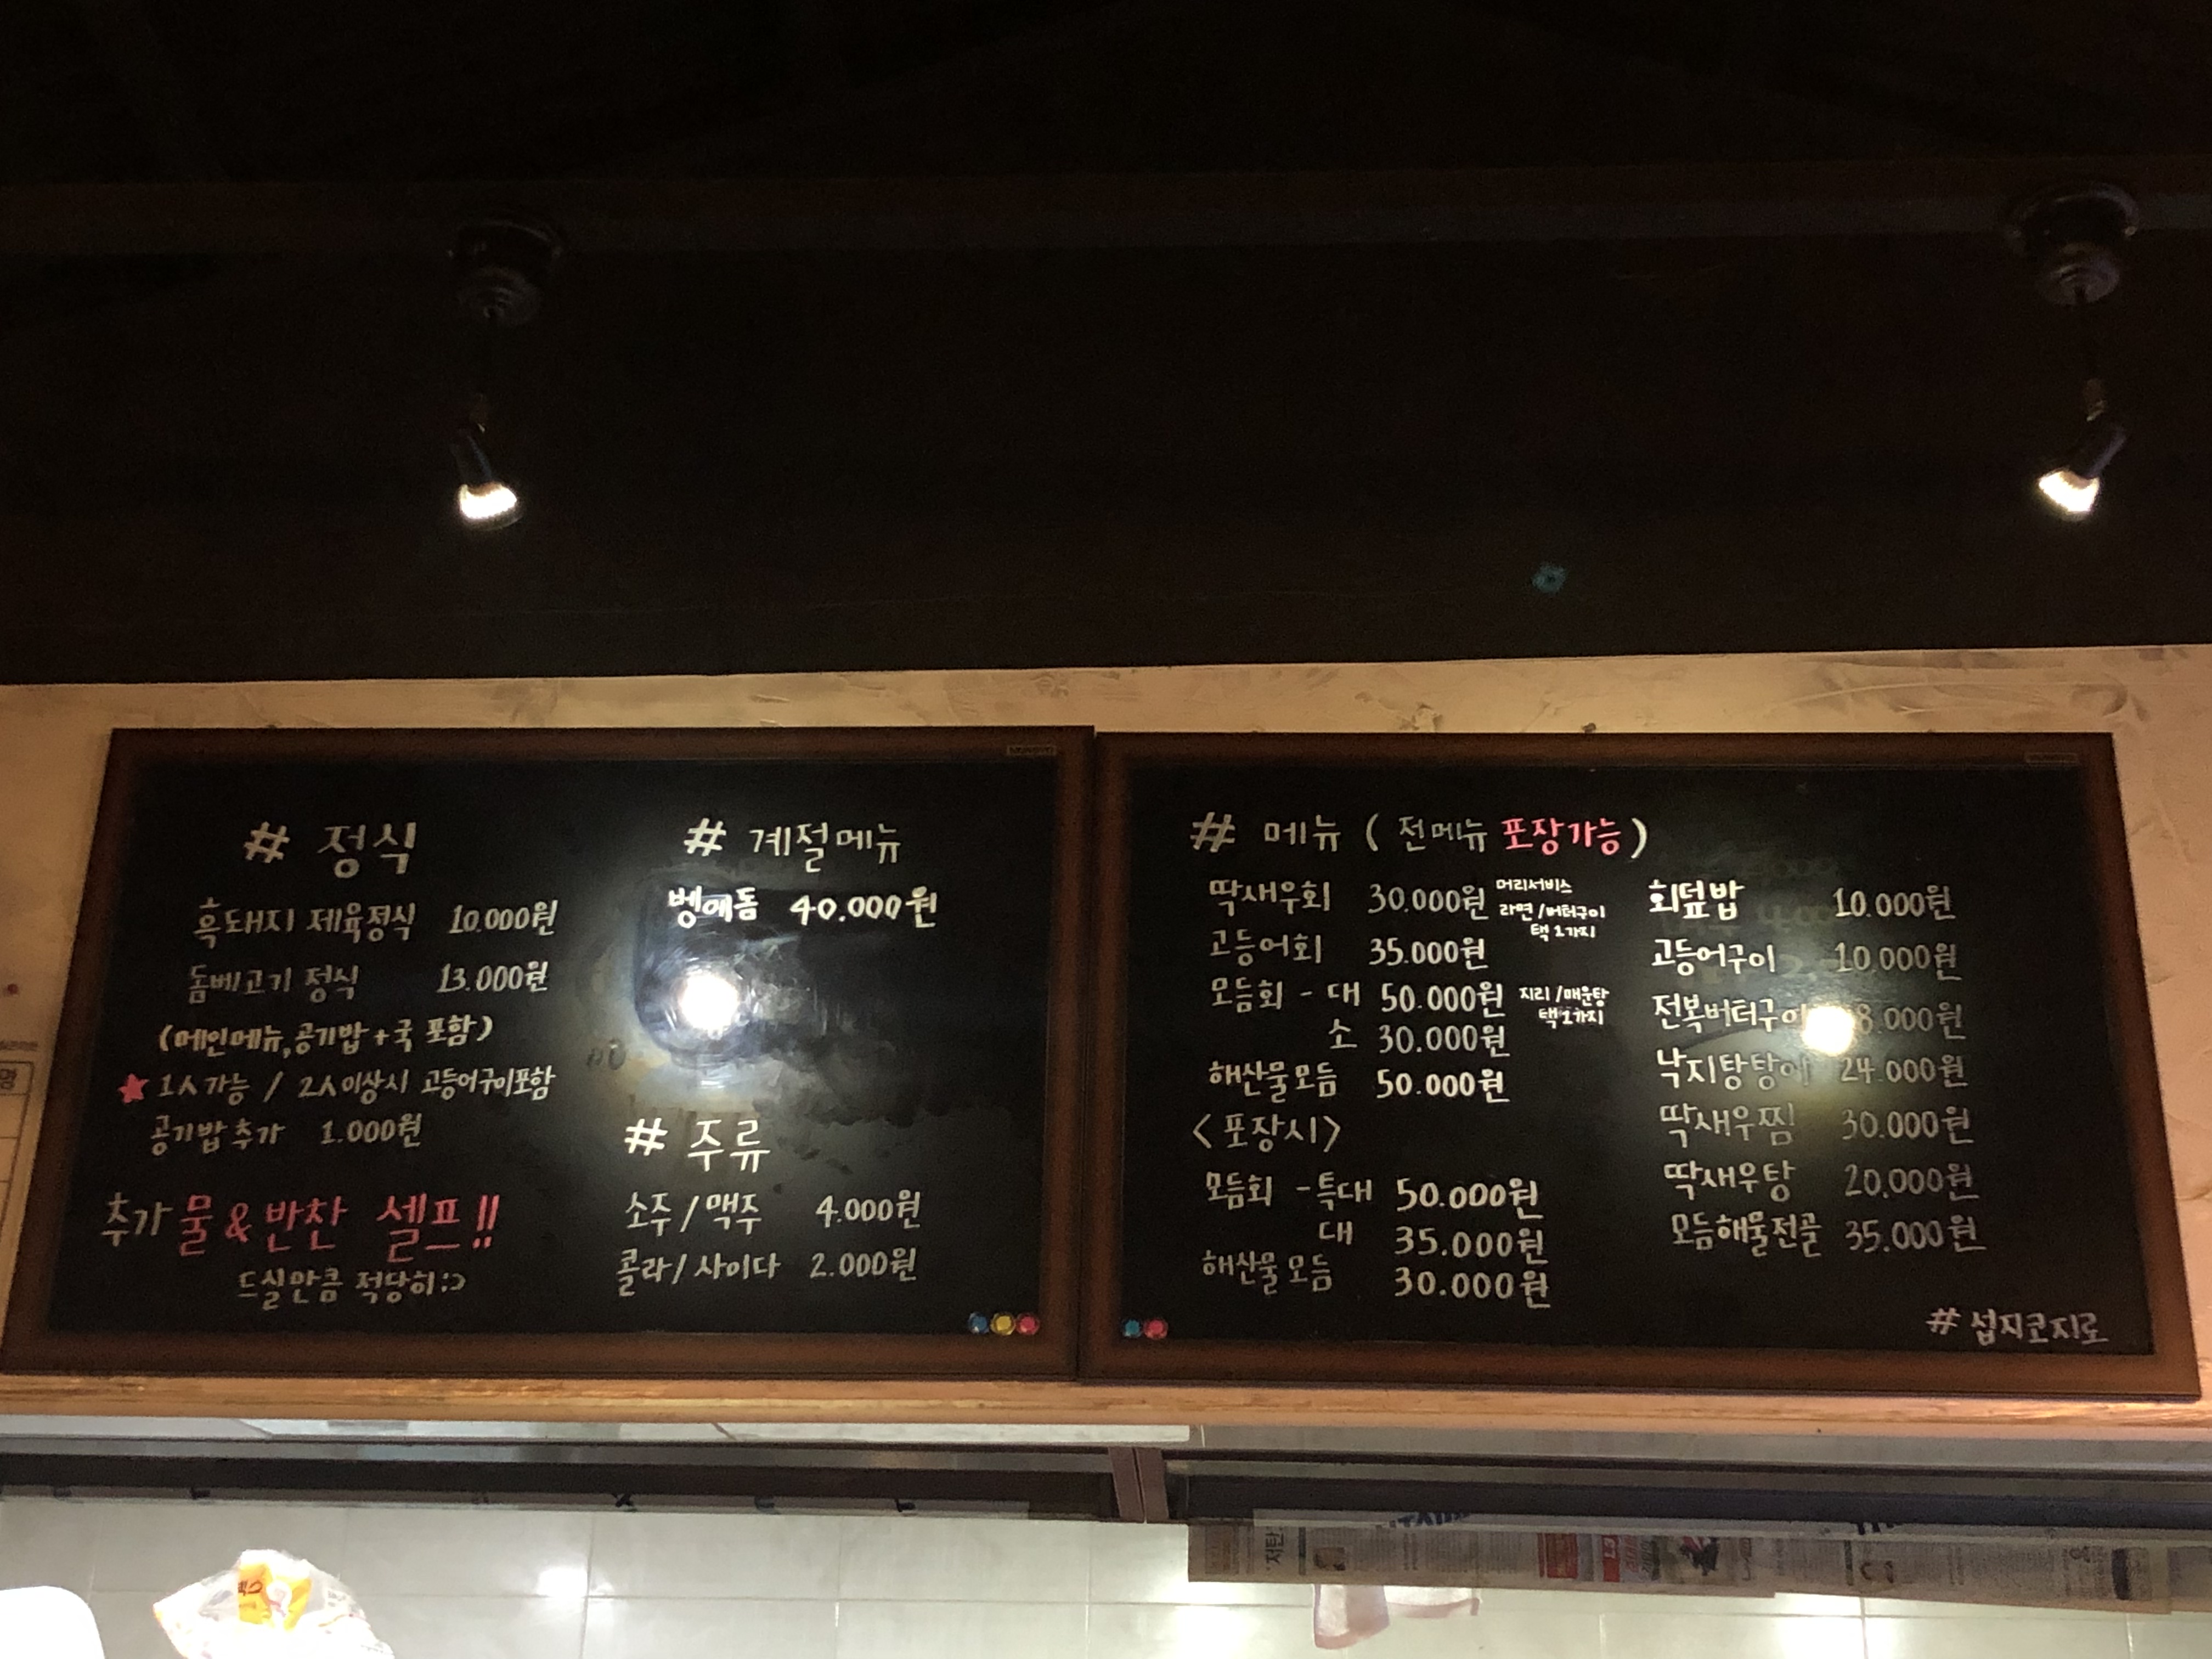 # 정식
흑돼지 제육정식 10.000원
돔베고기 정식 13.000원
(메인메뉴,공기밥+국 포함)
★ 1人가능 / 2人이상시 고등어구이포함
공기밥추가 1.000원
추가 물&반찬 셀프!!
드실만큼 적당히:)
# 계절메뉴
벵에돔 40.000원
# 주류
소주/맥주 4.000원
콜라/사이다 2.000원
# 메뉴 (전메뉴 포장가능)
딱새우회 30.000원 머리서비스
라면/버터구이
택1가지
고등어회 35.000원
모듬회 - 대 50.000원 지리/매운탕
택1가지
소 30.000원
해산물모듬 50.000원
<포장시>
모듬회 - 특대 50.000원
대 35.000원
해산물모듬 30.000원
회덮밥 10.000원
고등어구이 10.000원
전복버터구이
낙지탕탕이 24.000원
딱새우찜 30.000원
딱새우탕 20.000원
모듬해물전골 35.000원
# 섭지코지로